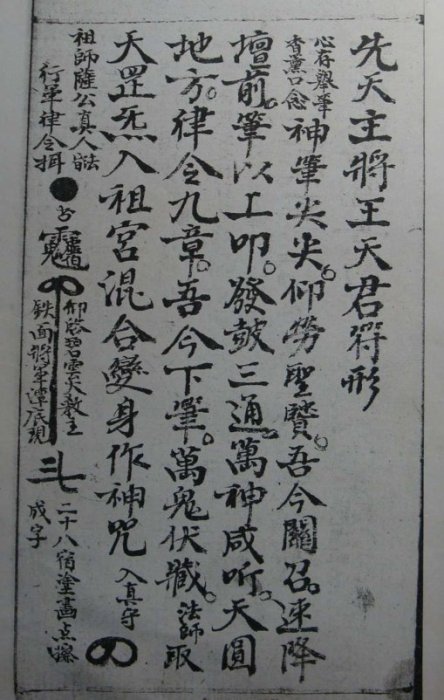 先天主將王天君符形
心存舉筆
香薰口念
神筆尖尖。仰勞聖賢。吾今關召。速降
壇前。筆以工叩。發鼓三通。萬神咸听。天圓
地方。律令九章。吾今下筆。萬鬼伏藏。法師取
天罡炁入祖宮混合變身作神咒 入真守
祖師薩公真人
行軍律令
仰啓碧雲大教主
鉄面將軍潭底現
二十八宿塗畫点
成字